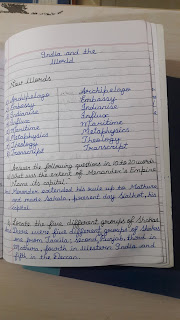 India and the
World
New Words
Archipelago Archipelago
Embassy Embassy
Indianise Indianise
Influx Influx
Maritime Maritime
Metaphysics Metaphysics
Theology Theology
Transcript Transcript
Answer the following questions in 10 to 20 words
What was the extent of Menander's Empire
Name its capital.
Menander extended his rule up to Mathura
and made Sakala, present day Sialkot, his
capital.
Locate the five different groups of Shakas
There were five different groups of Shakas
one from Taxila; second Punjab, third in
Mathura, fourth in Western India and
fifth in the Deccan.